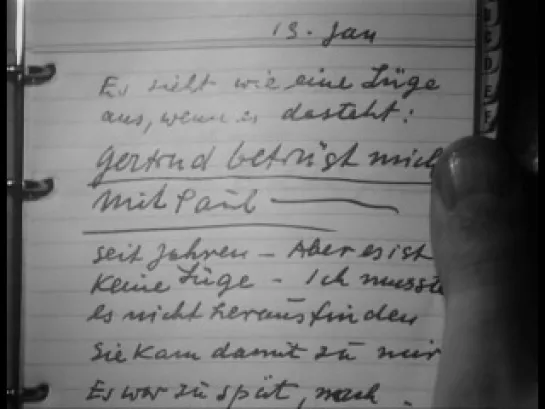 19. Jan
Es sieht wie eine Lüge
aus, wenn es dasteht:
Gertrud betrügt mich
mit Paul —
seit Jahren - Aber es ist
keine Lüge - Ich musste
es nicht herausfinden
Sie kam damit zu mir
Es war zu spät, nach -
B
C
D
E
F